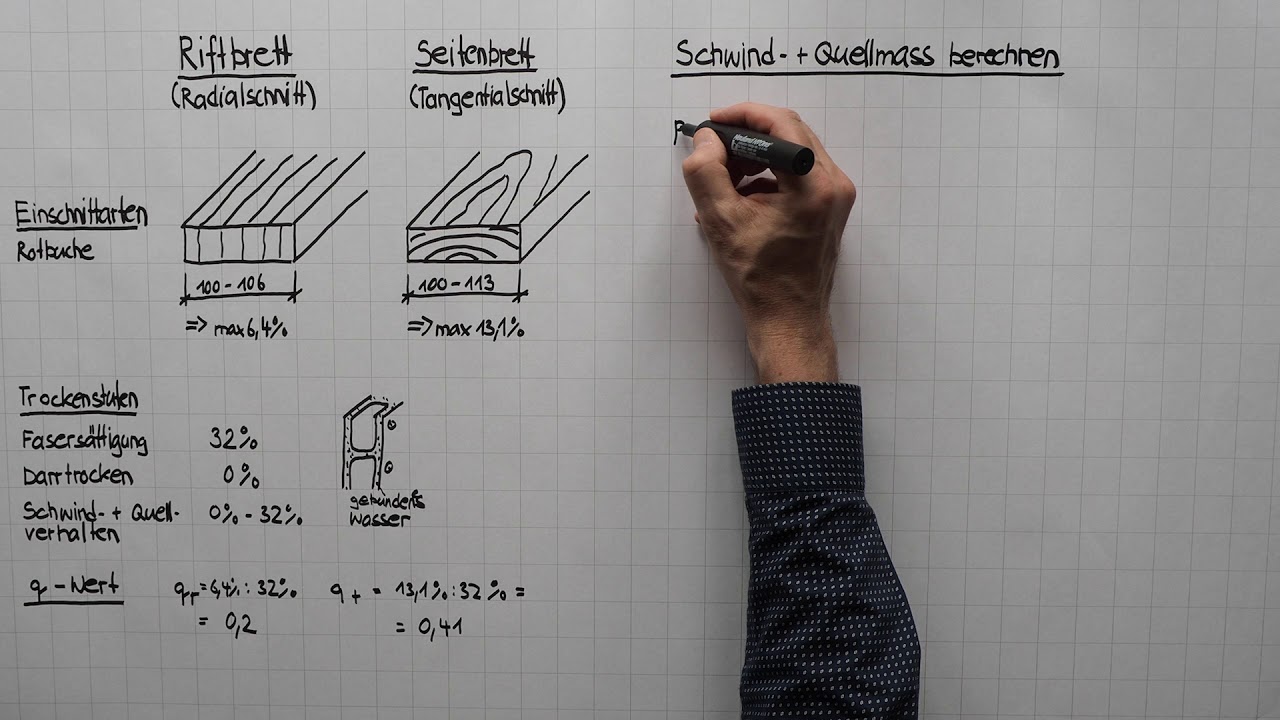 Riftbrett
(Radialschnitt)
Seitenbrett
(Tangentialschnitt)
Schwind- + Quellmass berechnen
Einschnittarten
Rotbuche
100 - 106
=> max 6,4%
100 - 113
=> max 13,1%
Trockenstufen
Fasersättigung 32%
Darrtrocken 0%
Schwind- + Quell- 0% - 32%
verhalten
wasser
q - Wert
qr = 6,4% : 32%
= 0,2
q t = 13,1% : 32% =
= 0,41